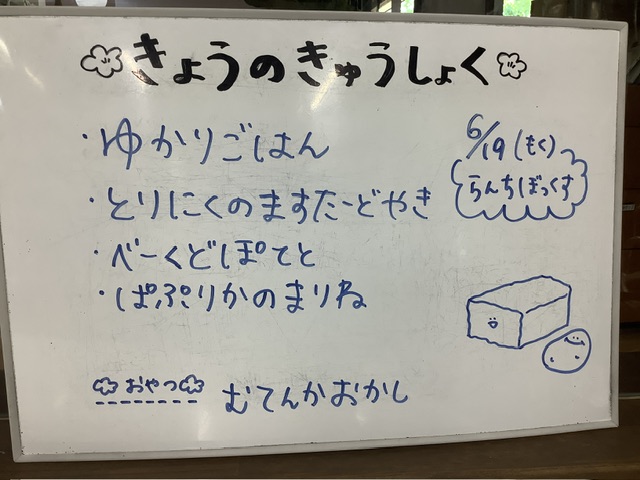 きょうのきゅうしょく
6/19(もく)
らんちぼっくす
・ゆかりごはん
・とりにくのますたーどやき
・べーくどぽてと
・ぱぷりかのまりね
おやつ むてんかおかし